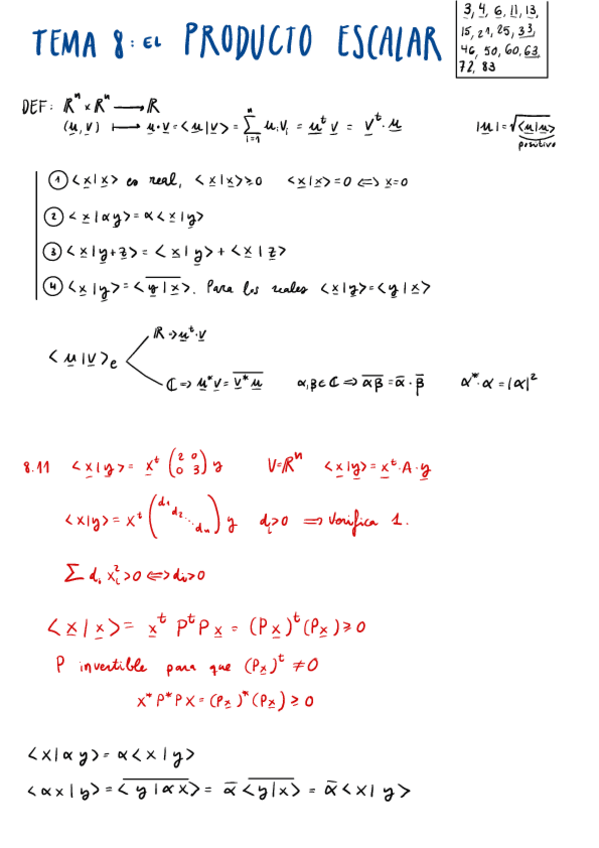 TEMA 8: EL PRODUCTO ESCALAR
3, 4, 6, 11, 13,
15, 21, 25, 33
46, 50, 60, 63,
72, 83
DEF: ℝⁿ × ℝⁿ ⟶ ℝ
(u, v) ⟼ u·v = <u|v> = Σⁿᵢ₌₁ uᵢvᵢ = uᵗv = vᵗ·u |u| = √<u|u>
positivo
① <x|x> es real, <x|x> ≥ 0 <x|x> = 0 ⟺ x = 0
② <x|αy> = α<x|y>
③ <x|y+z> = <x|y> + <x|z>
④ <x|y> = <y|x>̅. Para los reales <x|y> = <y|x>
ℝ → uᵗ·v
<u|v>e
ℂ ⇒ u*v = v*u̅ α,β∈ℂ ⇒ αβ̅ = α̅·β̅ α*·α = |α|²
8.11 <x|y> = xᵗ (2 0 / 0 3) y V=ℝⁿ <x|y> = xᵗ·A·y
<x|y> = xᵗ (d₁ d₂ ⋱ dₙ) y dᵢ>0 ⟹ Verifica 1.
Σ dᵢ xᵢ² > 0 ⟺ dᵢ > 0
<x|x> = xᵗ Pᵗ P x = (Px)ᵗ (Px) ≥ 0
P invertible para que (Px)ᵗ ≠ 0
x* P* P x = (Px)* (Px) ≥ 0
<x|αy> = α<x|y>
<αx|y> = <y|αx>̅ = α̅ <y|x>̅ = α̅ <x|y>